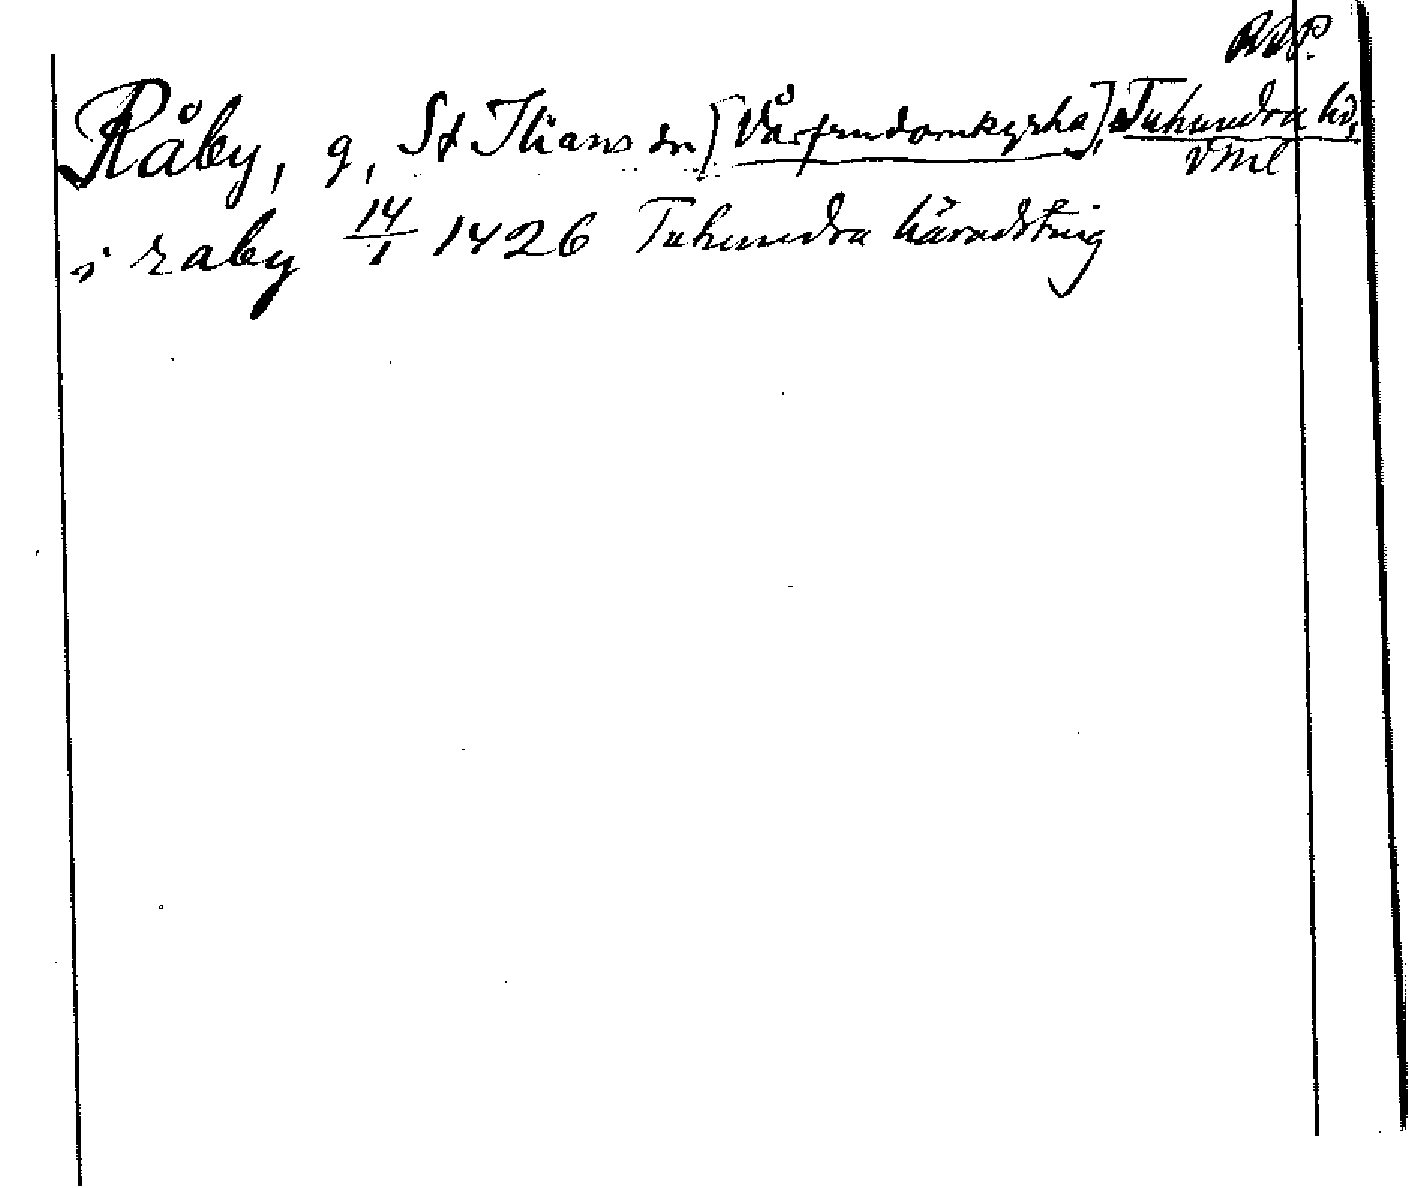 RAP.
Råby, g, St Ilians sn [Vårfrudomkyrka], Tuhundra hd,
Vml
i raby 14/1 1426 Tuhundra häradsting